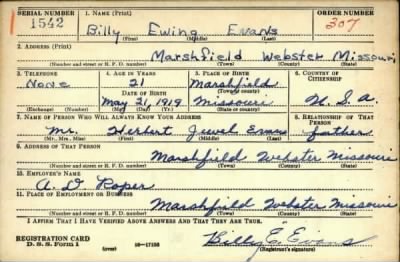 SERIAL NUMBER 1. NAME (Print) ORDER NUMBER
1542 Billy Ewing Evans 307
(First) (Middle) (Last)
2. ADDRESS (Print)
Marshfield Webster Missouri
(Number and street or R. F. D. number) (Town) (County) (State)
3. TELEPHONE 4. AGE IN YEARS 5. PLACE OF BIRTH 6. COUNTRY OF CITIZENSHIP
None 21 Marshfield
DATE OF BIRTH (Town or county)
May 21, 1919 Missouri U. S. A.
(Exchange) (Number) (Mo.) (Day) (Yr.) (State or country)
7. NAME OF PERSON WHO WILL ALWAYS KNOW YOUR ADDRESS 8. RELATIONSHIP OF THAT PERSON
Mr. Herbert Jewel Evans father
(Mr., Mrs., Miss) (First) (Middle) (Last)
9. ADDRESS OF THAT PERSON
Marshfield Webster Missouri
(Number and street or R. F. D. number) (Town) (County) (State)
10. EMPLOYER'S NAME
A. D. Roper
11. PLACE OF EMPLOYMENT OR BUSINESS
Marshfield Webster Missouri
(Number and street or R. F. D. number) (Town) (County) (State)
I AFFIRM THAT I HAVE VERIFIED ABOVE ANSWERS AND THAT THEY ARE TRUE.
REGISTRATION CARD Billy E. Evans
D. S. S. Form 1 (over) 16—17105 (Registrant's signature)